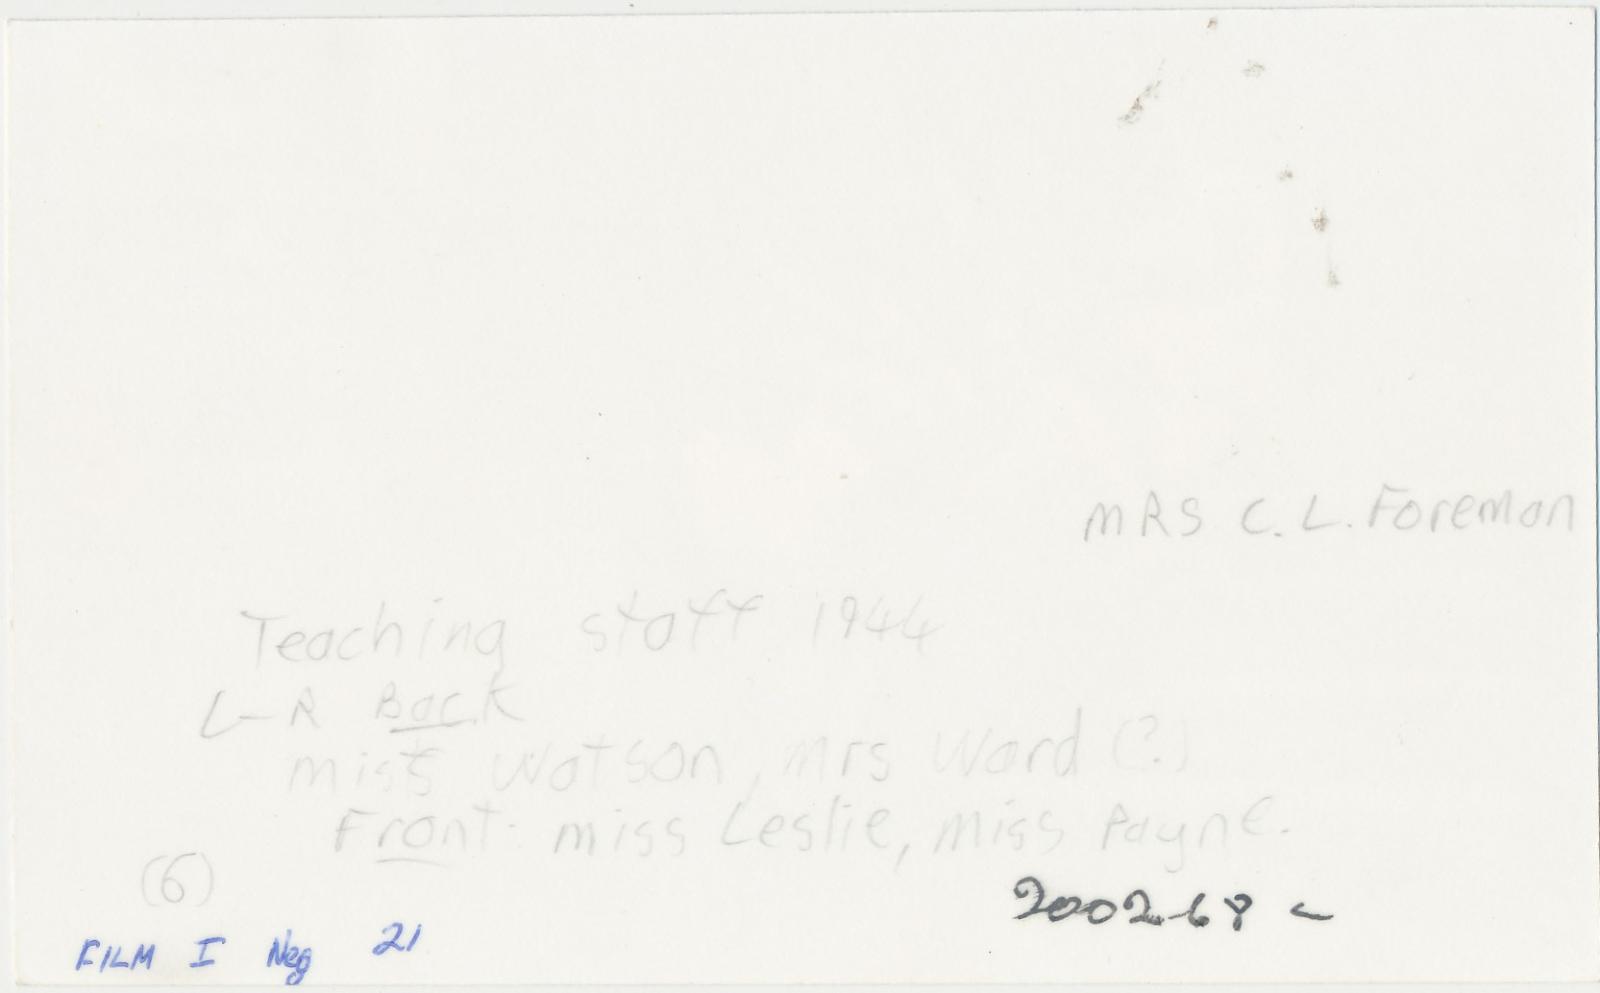 MRS C. L. Foreman
Teaching staff 1944
L-R Back
Miss Watson, Mrs Ward (?)
Front: Miss Leslie, Miss Payne.
(6)
2002-68 c
FILM I Neg 21